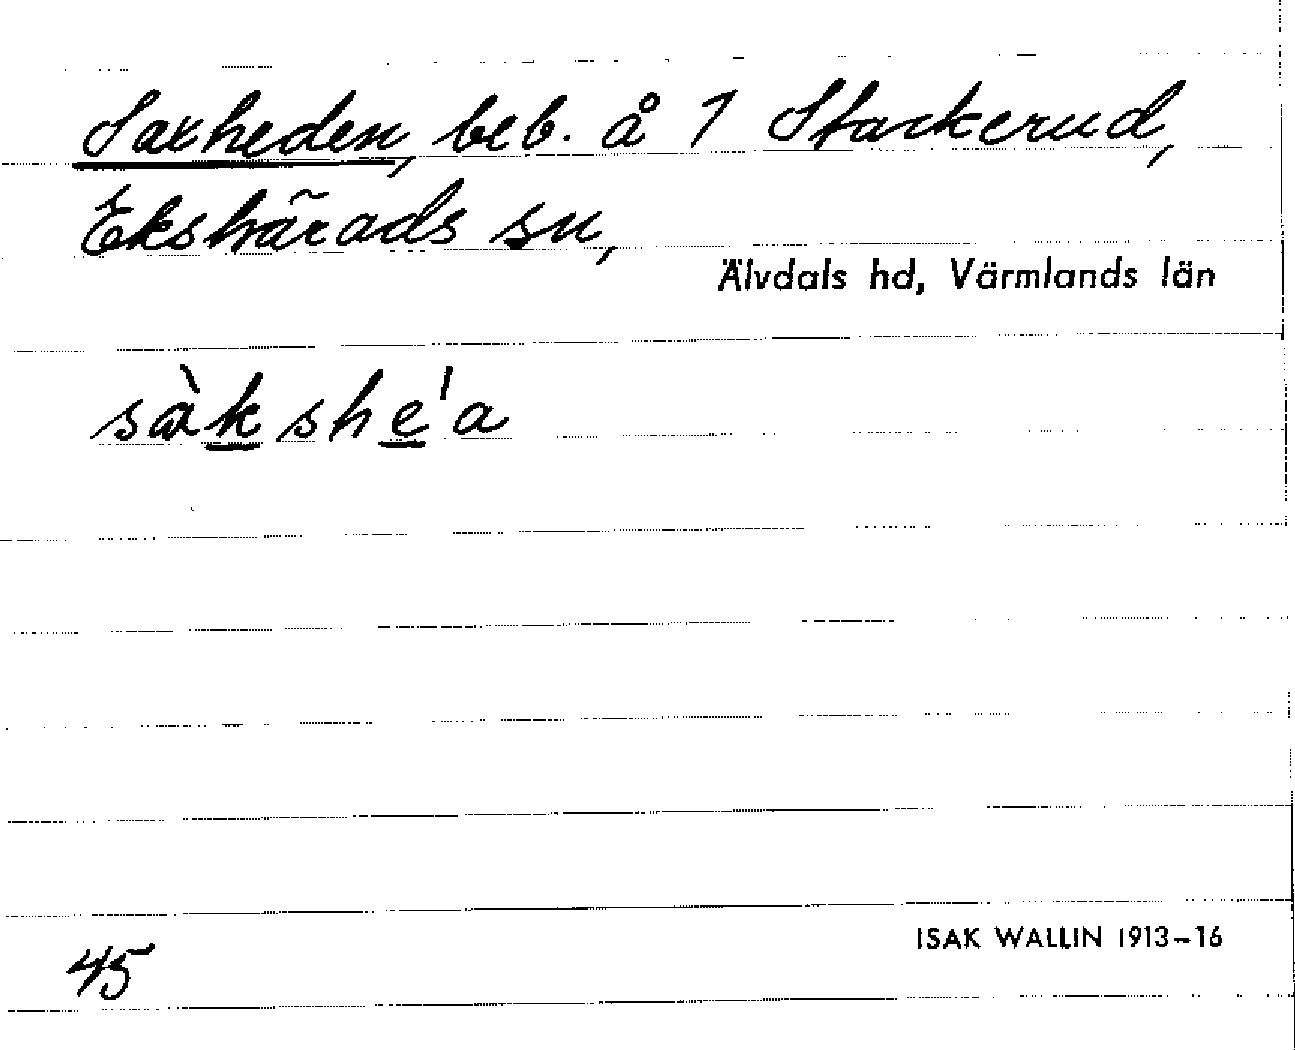 Saxheden, beb. å 1 Stackerud,
Ekshärads sn,
Älvdals hd, Värmlands län
sàkshe'a
ISAK WALLIN 1913-16
45